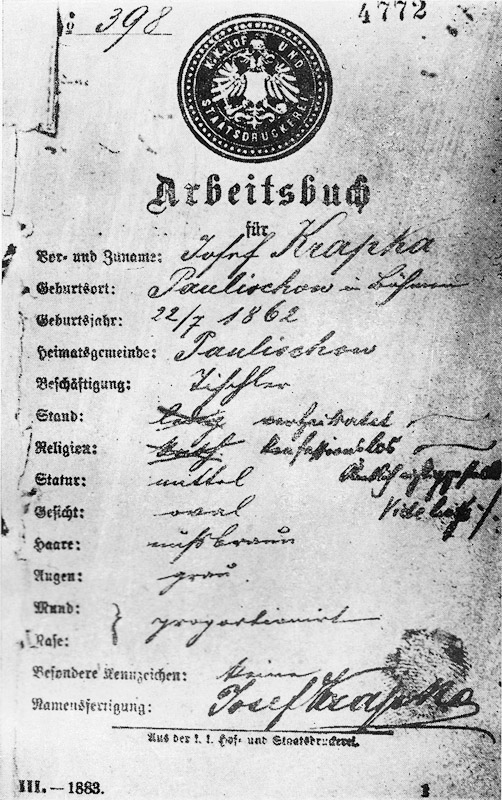 № 398
4772
K. K. HOF UND
STAATSDRUCKEREI
Arbeitsbuch
für
Vor- und Zuname: Josef Krapka
Geburtsort: Paulischow in Böhmen
Geburtsjahr: 22/7 1862
Heimatsgemeinde: Paulischow
Beschäftigung: Tischler
Stand: ledig verheiratet
Religion: kath confessionslos
Statur: mittel
Gesicht: oval
Haare: nußbraun
Augen: grau
Mund:
Nase: } proportionirt
Besondere Kennzeichen: keine
Namensfertigung: Josef Krapka
Aus der k. k. Hof- und Staatsdruckerei.
III. — 1883.
1